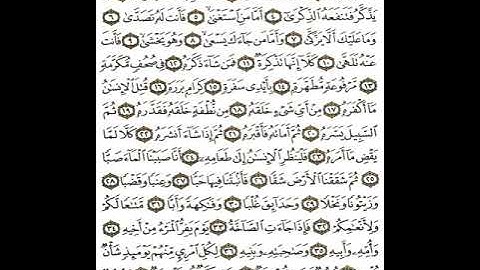 يَذَّكَّرُ فَتَنفَعَهُ ٱلذِّكْرَىٰٓ ٤ أَمَّا مَنِ ٱسْتَغْنَىٰ ٥ فَأَنتَ لَهُۥ تَصَدَّىٰ ٦
وَمَا عَلَيْكَ أَلَّا يَزَّكَّىٰ ٧ وَأَمَّا مَن جَآءَكَ يَسْعَىٰ ٨ وَهُوَ يَخْشَىٰ ٩ فَأَنتَ
عَنْهُ تَلَهَّىٰ ١٠ كَلَّآ إِنَّهَا تَذْكِرَةٌ ١١ فَمَن شَآءَ ذَكَرَهُۥ ١٢ فِى صُحُفٍ مُّكَرَّمَةٍ
١٣ مَّرْفُوعَةٍ مُّطَهَّرَةٍۭ ١٤ بِأَيْدِى سَفَرَةٍ ١٥ كِرَامٍۭ بَرَرَةٍ ١٦ قُتِلَ ٱلْإِنسَٰنُ
مَآ أَكْفَرَهُۥ ١٧ مِنْ أَىِّ شَىْءٍ خَلَقَهُۥ ١٨ مِن نُّطْفَةٍ خَلَقَهُۥ فَقَدَّرَهُۥ ١٩ ثُمَّ
ٱلسَّبِيلَ يَسَّرَهُۥ ٢٠ ثُمَّ أَمَاتَهُۥ فَأَقْبَرَهُۥ ٢١ ثُمَّ إِذَا شَآءَ أَنشَرَهُۥ ٢٢ كَلَّا لَمَّا
يَقْضِ مَآ أَمَرَهُۥ ٢٣ فَلْيَنظُرِ ٱلْإِنسَٰنُ إِلَىٰ طَعَامِهِۦٓ ٢٤ أَنَّا صَبَبْنَا ٱلْمَآءَ صَبًّا
٢٥ ثُمَّ شَقَقْنَا ٱلْأَرْضَ شَقًّا ٢٦ فَأَنۢبَتْنَا فِيهَا حَبًّا ٢٧ وَعِنَبًا وَقَضْبًا ٢٨
وَزَيْتُونًا وَنَخْلًا ٢٩ وَحَدَآئِقَ غُلْبًا ٣٠ وَفَٰكِهَةً وَأَبًّا ٣١ مَّتَٰعًا لَّكُمْ
وَلِأَنْعَٰمِكُمْ ٣٢ فَإِذَا جَآءَتِ ٱلصَّآخَّةُ ٣٣ يَوْمَ يَفِرُّ ٱلْمَرْءُ مِنْ أَخِيهِ ٣٤
وَأُمِّهِۦ وَأَبِيهِ ٣٥ وَصَٰحِبَتِهِۦ وَبَنِيهِ ٣٦ لِكُلِّ ٱمْرِئٍ مِّنْهُمْ يَوْمَئِذٍ شَأْنٌ